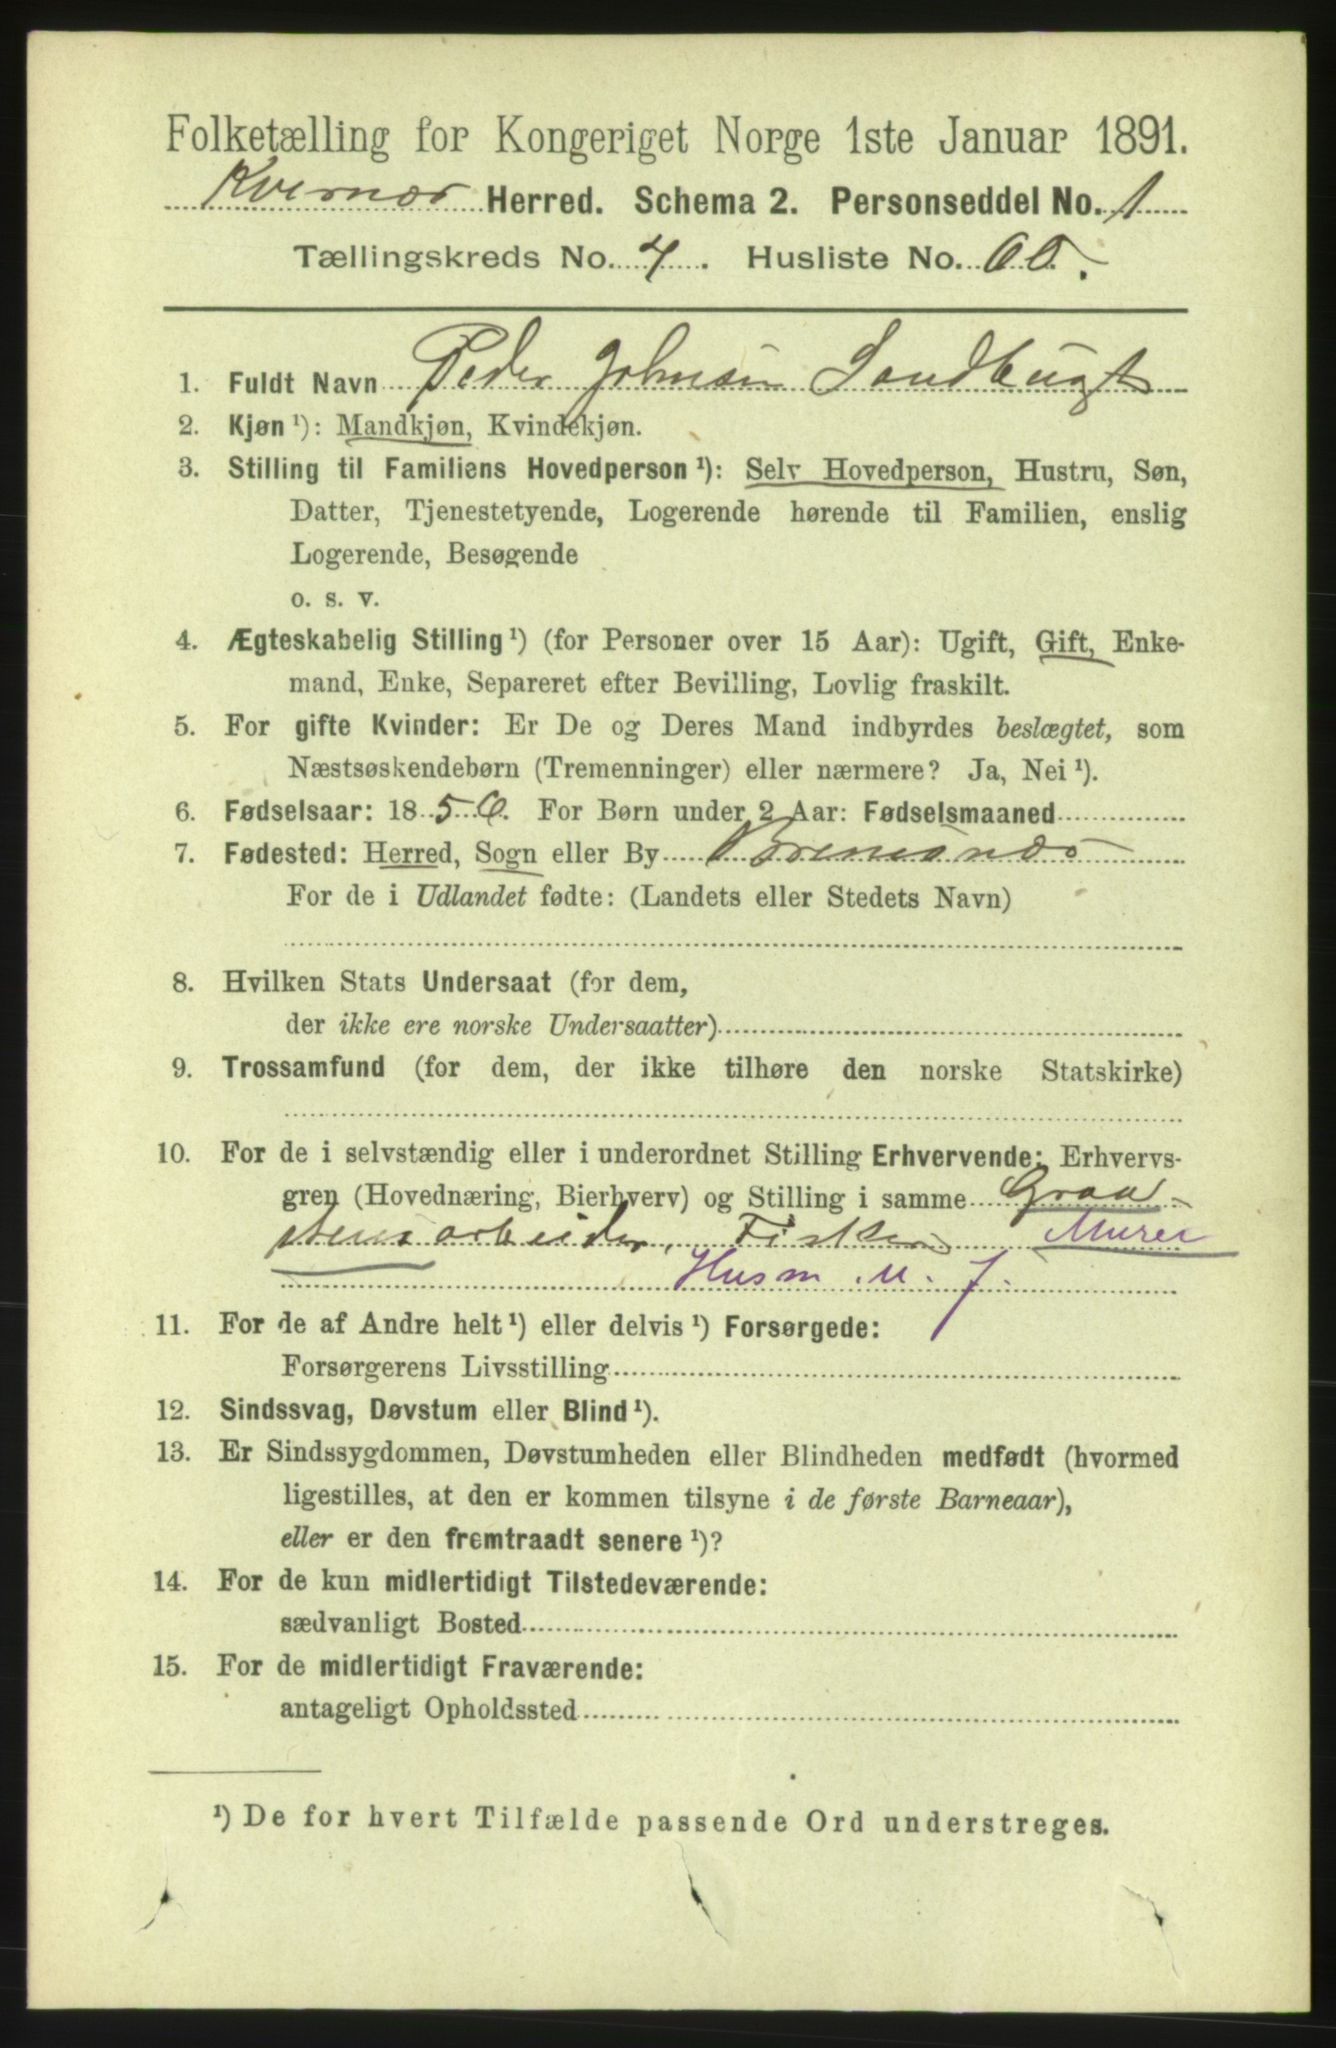 Folketælling for Kongeriget Norge 1ste Januar 1891.
Kvernes Herred. Schema 2. Personseddel No. 1
Tællingskreds No. 7. Husliste No. 60.
1. Fuldt Navn Peder Johnsen Sandbugt
2. Kjøn¹): Mandkjøn, Kvindekjøn.
3. Stilling til Familiens Hovedperson¹): Selv Hovedperson, Hustru, Søn,
Datter, Tjenestetyende, Logerende hørende til Familien, enslig
Logerende, Besøgende
o. s. v.
4. Ægteskabelig Stilling¹) (for Personer over 15 Aar): Ugift, Gift, Enke-
mand, Enke, Separeret efter Bevilling, Lovlig fraskilt.
5. For gifte Kvinder: Er De og Deres Mand indbyrdes beslægtet, som
Næstsøskendebørn (Tremenninger) eller nærmere? Ja, Nei¹).
6. Fødselsaar: 1856. For Børn under 2 Aar: Fødselsmaaned
7. Fødested: Herred, Sogn eller By Bremsnes
For de i Udlandet fødte: (Landets eller Stedets Navn)
8. Hvilken Stats Undersaat (for dem,
der ikke ere norske Undersaatter)
9. Trossamfund (for dem, der ikke tilhøre den norske Statskirke)
10. For de i selvstændig eller i underordnet Stilling Erhvervende: Erhvervs-
gren (Hovednæring, Bierhverv) og Stilling i samme Graa-
stensarbeider, Fisker Murer
Husm. M. J.
11. For de af Andre helt¹) eller delvis¹) Forsørgede:
Forsørgerens Livsstilling
12. Sindssvag, Døvstum eller Blind¹).
13. Er Sindssygdommen, Døvstumheden eller Blindheden medfødt (hvormed
ligestilles, at den er kommen tilsyne i de første Barneaar),
eller er den fremtraadt senere¹)?
14. For de kun midlertidigt Tilstedeværende:
sædvanligt Bosted
15. For de midlertidigt Fraværende:
antageligt Opholdssted
¹) De for hvert Tilfælde passende Ord understreges.